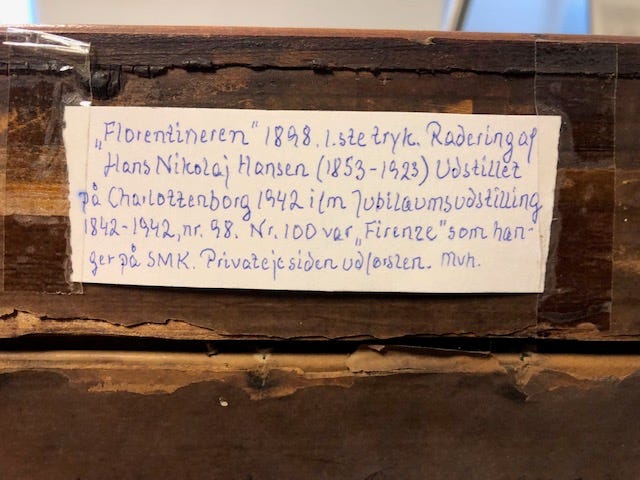 „Florentineren" 1898. 1.ste tryk. Radering af
Hans Nikolaj Hansen (1853-1923) Udstillet
på Charlottenborg 1942 i/m Jubilæumsudstilling
1842-1942, nr. 98. Nr. 100 var „Firenze" som hæn-
ger på SMK. Privateje siden udførslen. Mvh.